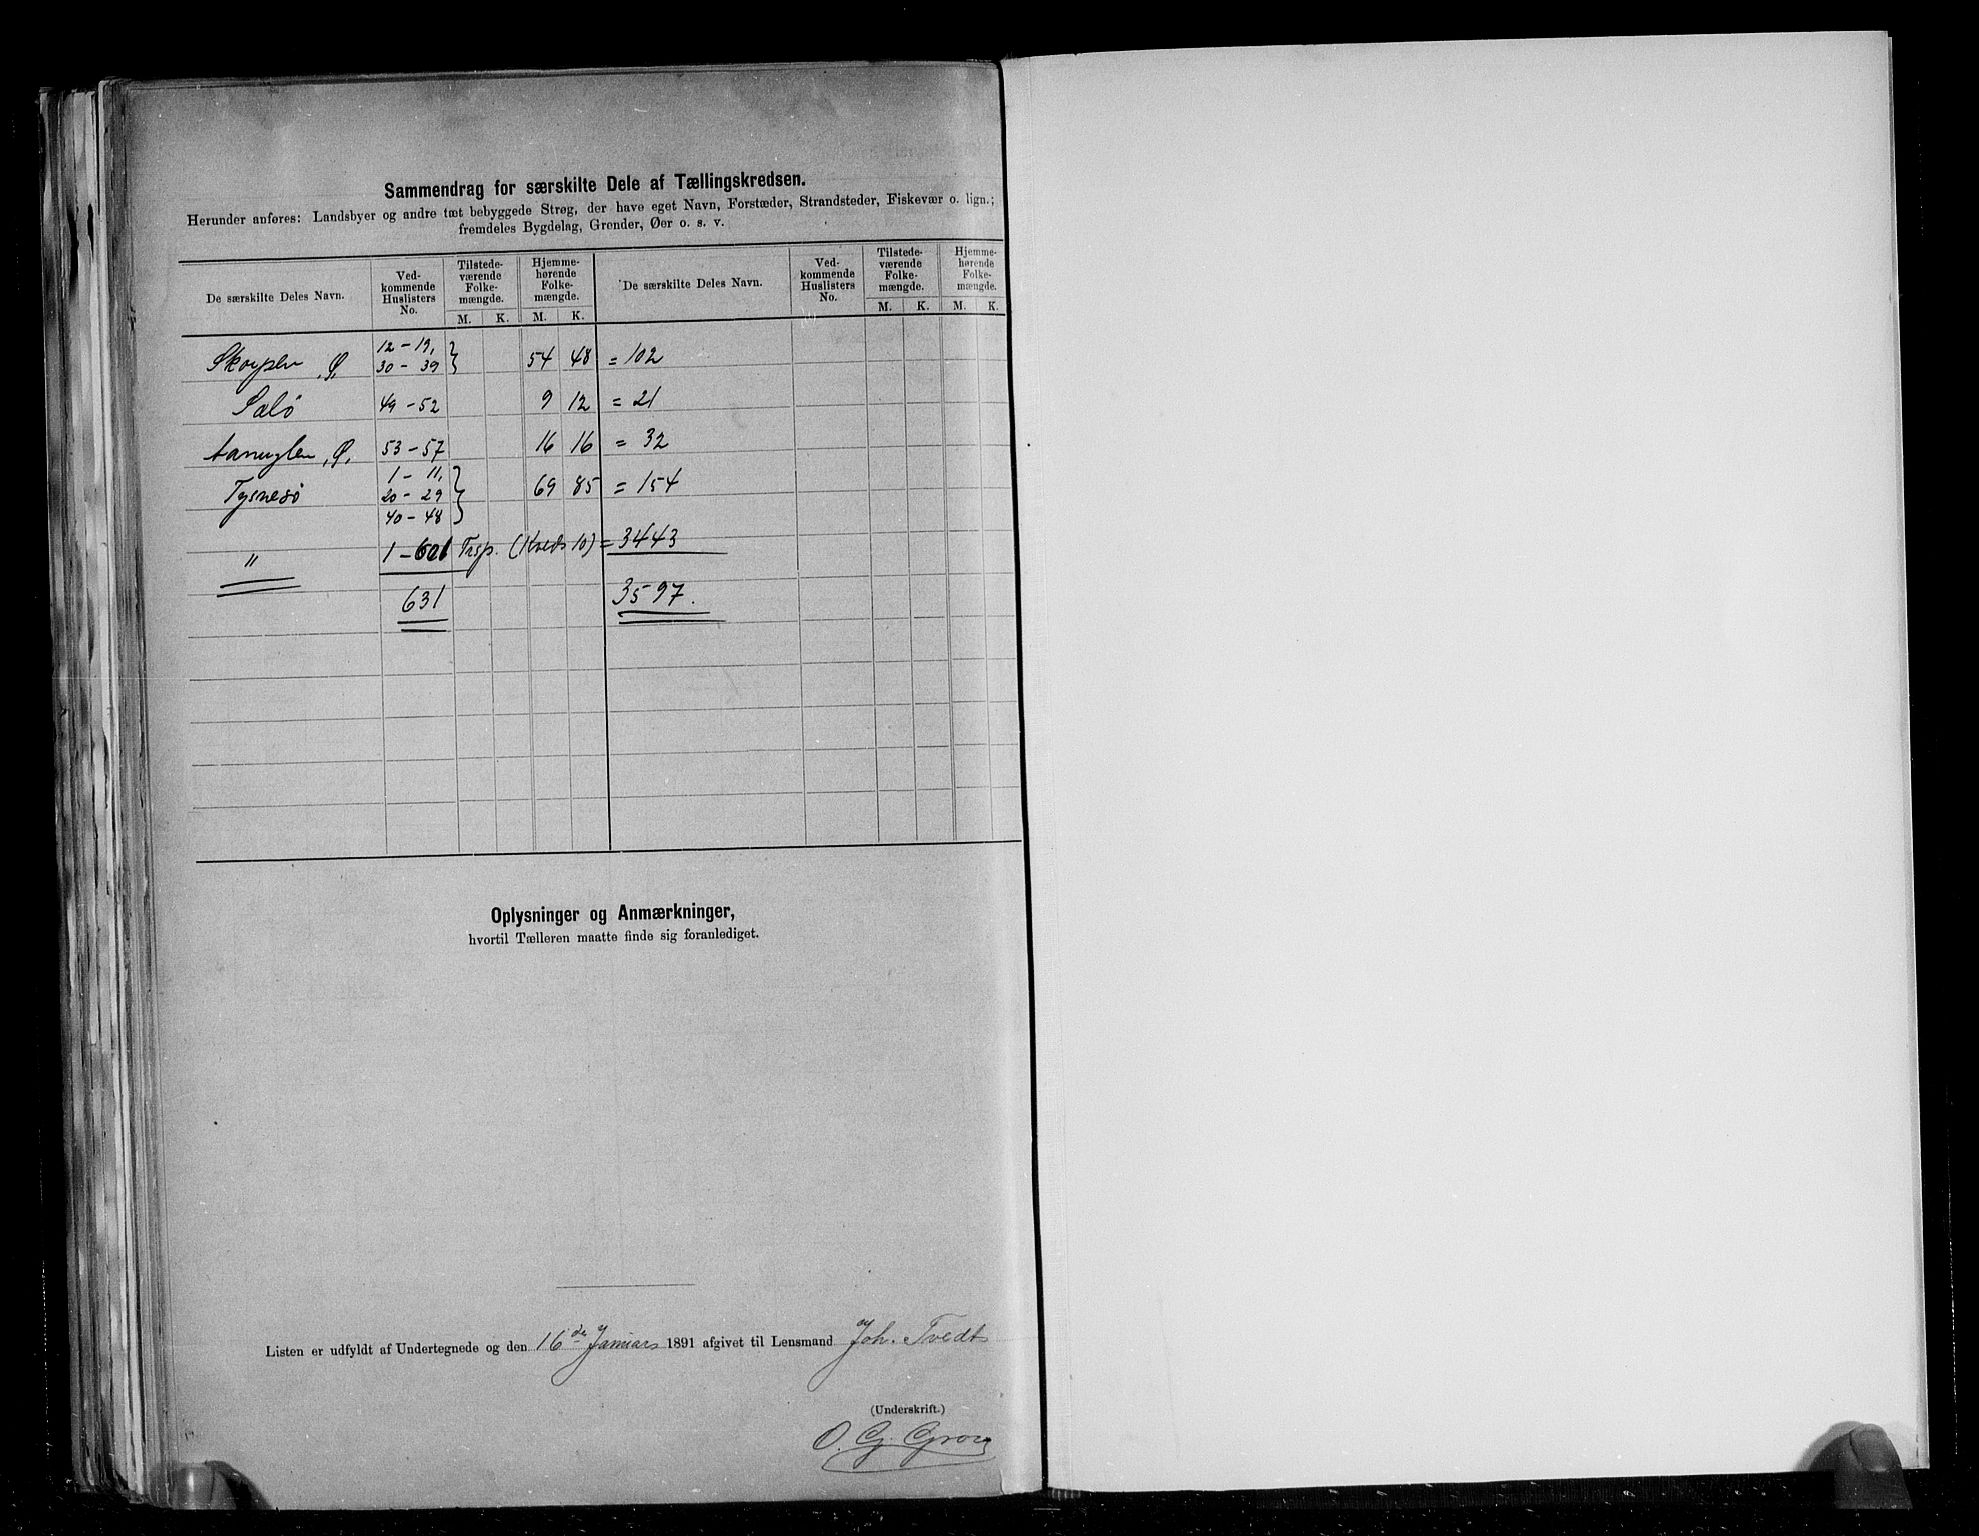 Sammendrag for særskilte Dele af Tællingskredsen.
Herunder anføres: Landsbyer og andre tæt bebyggede Strøg, der have eget Navn, Forstæder, Strandsteder, Fiskevær o. lign.;
fremdeles Bygdelag, Grender, Øer o. s. v.
De særskilte Deles Navn. Ved-kommende Huslisters No. Tilstede-værende Folke-mængde. M. K. Hjemme-hørende Folke-mængde. M. K. De særskilte Deles Navn. Ved-kommende Huslisters No. Tilstede-værende Folke-mængde. M. K. Hjemme-hørende Folke-mængde. M. K.
Skorpen, Ø, 12 - 19, 30 - 39 } 54 48 = 102
Sælø 49 - 52 9 12 = 21
Aanuglen, Ø, 53 - 57 16 16 = 32
Tysnesø 1 - 11, 20 - 29 40 - 48 } 69 85 = 154
" 1 - 601 Trsp. (Kreds 10) = 3443
631 3597.
Oplysninger og Anmærkninger,
hvortil Tælleren maatte finde sig foranlediget.
Listen er udfyldt af Undertegnede og den 16de Januar 1891 afgivet til Lensmand Joh. Tvedt
(Underskrift.)
O. G.